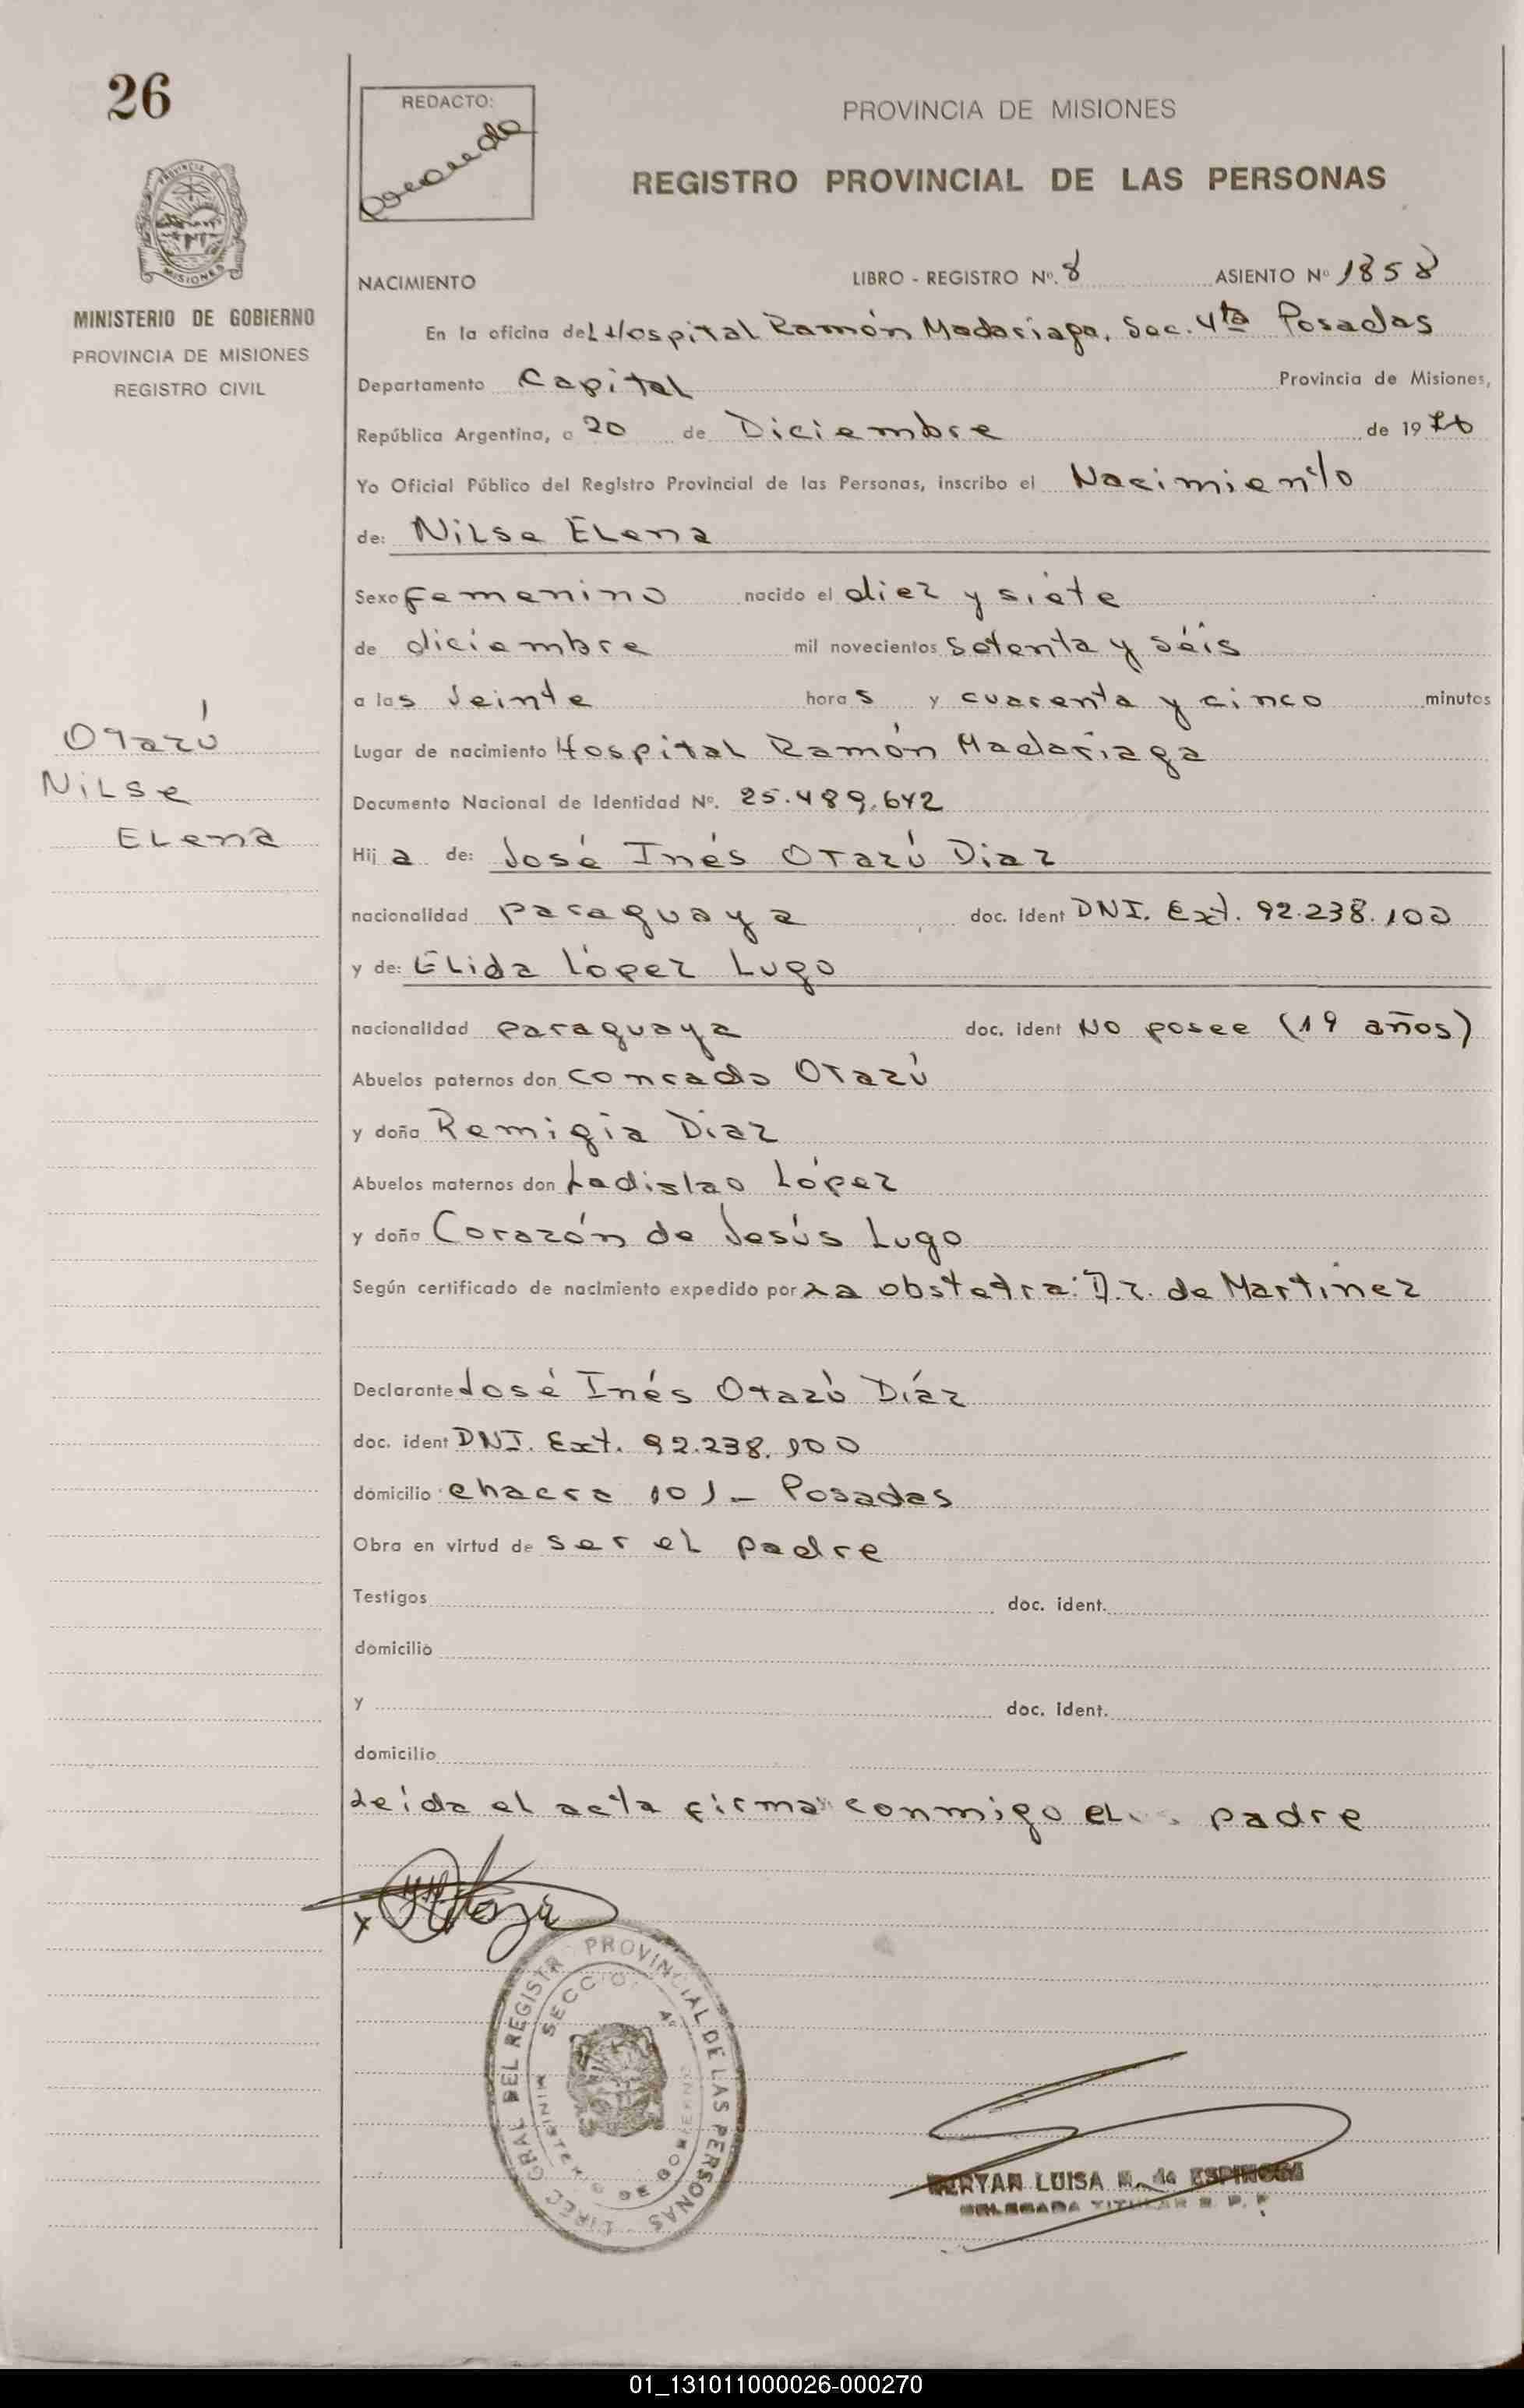 26
REDACTO:
PROVINCIA DE MISIONES
REGISTRO PROVINCIAL DE LAS PERSONAS
PROVINCIA DE
MISIONES
MINISTERIO DE GOBIERNO
PROVINCIA DE MISIONES
REGISTRO CIVIL
NACIMIENTO LIBRO - REGISTRO Nº. 8 ASIENTO Nº 1858
En la oficina del Hospital Ramón Madariaga, Sec. 4ta Posadas
Departamento Capital Provincia de Misiones,
República Argentina, a 20 de Diciembre de 1976
Yo Oficial Público del Registro Provincial de las Personas, inscribo el Nacimiento
de: Nilse Elena
Sexo femenino nacido el diez y siete
de diciembre mil novecientos setenta y séis
a las veinte horas y cuarenta y cinco minutos
Otazú
Nilse
Elena
Lugar de nacimiento Hospital Ramón Madariaga
Documento Nacional de Identidad Nº. 25.489.642
Hija de: José Inés Otazú Diaz
nacionalidad paraguaya doc. ident DNI. Ext. 92.238.100
y de: Elida López Lugo
nacionalidad paraguaya doc. ident No posee (19 años)
Abuelos paternos don Conrado Otazú
y doña Remigia Diaz
Abuelos maternos don Ladislao López
y doña Corazón de Jesús Lugo
Según certificado de nacimiento expedido por La obstetra: D.Z. de Martinez
Declarante José Inés Otazú Díaz
doc. ident DNI. Ext. 92.238.100
domicilio chacra 101 - Posadas
Obra en virtud de ser el padre
Testigos doc. ident.
domicilio
y doc. ident.
domicilio
Leída el acta firma conmigo el padre
DIREC. GRAL DEL REGISTR PROVINCIAL DE LAS PERSONAS
SECCIO 4º
MINISTERIO DE GOBIERNO
LUISA M. de ESPINOSA
DELEGADA TITULAR R. P. P.
01_131011000026-000270